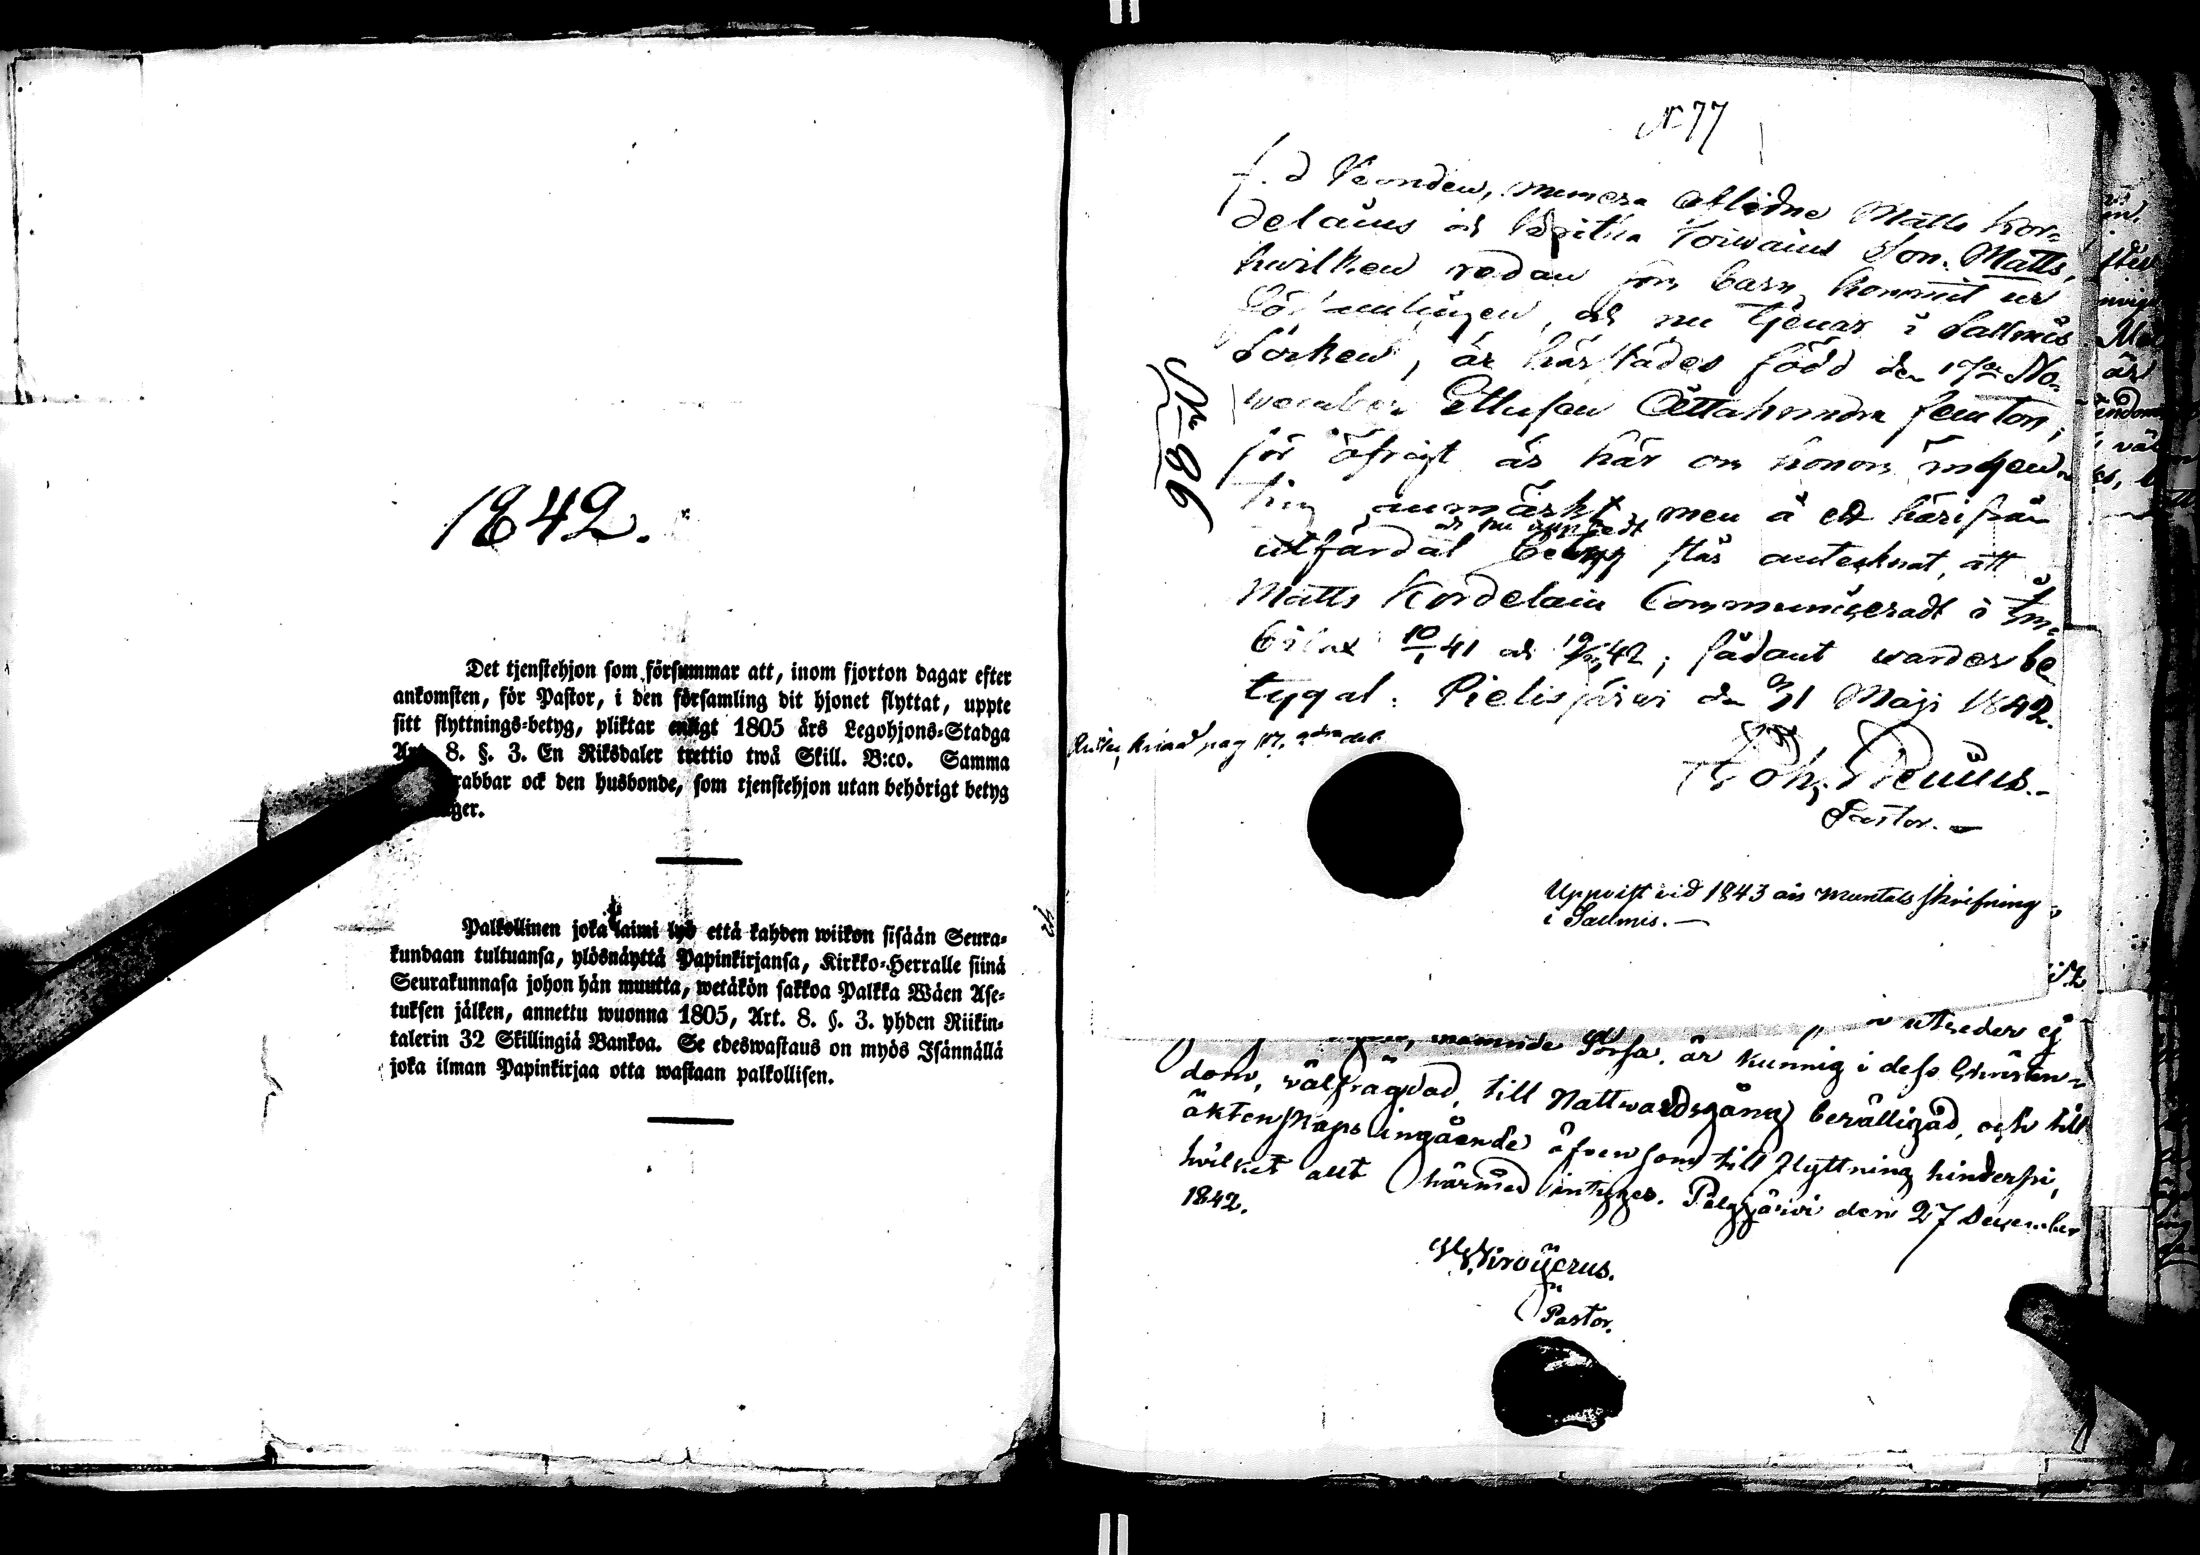 1842.
Det tjenstehjon som försummar att, inom fjorton dagar efter
ankomsten, för Pastor, i den församling dit hjonet flyttat, uppte
sitt flyttnings-betyg, pliktar enligt 1805 års Legohjons-Stadga
Art. 8. §. 3. En Riksdaler trettio twå Skill. B:co. Samma
rabbar ock den husbonde, som tjenstehjon utan behörigt betyg
ger.
Palkollinen joka laimi lyö että kahden wiikon sisään Seura-
kundaan tultuansa, ylösnäyttä Papinkirjansa, Kirkko-Herralle siinä
Seurakunnasa johon hän muutta, wetäkön sakkoa Palkka Wäen Ase-
tuksen jälken, annettu wuonna 1805, Art. 8. §. 3. yhden Riikin-
talerin 32 Skillingiä Bankoa. Se edeswastaus on myös Isännällä
joka ilman Papinkirjaa otta wastaan palkollisen.
N 77
f. d Bonden, numera aflidne Matts Kor-
delains och Toiwains Son. Matts,
hwilken redan som barn kommit ur
Församlingen, och nu tjenar i Sallmis
Socken, är härstädes född den 17de No-
wember Ettusen Ättahundra femton;
för öfrigt är här om honom ingen-
ting anmärkt, men å ett härifrån
utfärdat betyg står antecknat, att
Matts Kordelain Communiceradt i Im-
bilax 10/1 41 och 42; sådant warder be
tygat. Pielisjärwi den 31 Maji 1842.
Joh.
Pastor.
No 86
pag 117, 2dra del.
Uppvist vid 1843 års Mantals skrifning
i Salmis.
utreder ej
Sorsa, är kunnig i dess Christen-
dom, välfrägdad, till Nattwardsgång berättigad, och till
äktenskaps ingående äfvensom till flyttning hinderfri,
hvilket allt härmed intygas. Pelgjärwi den 27 December
1842.
Pastor.